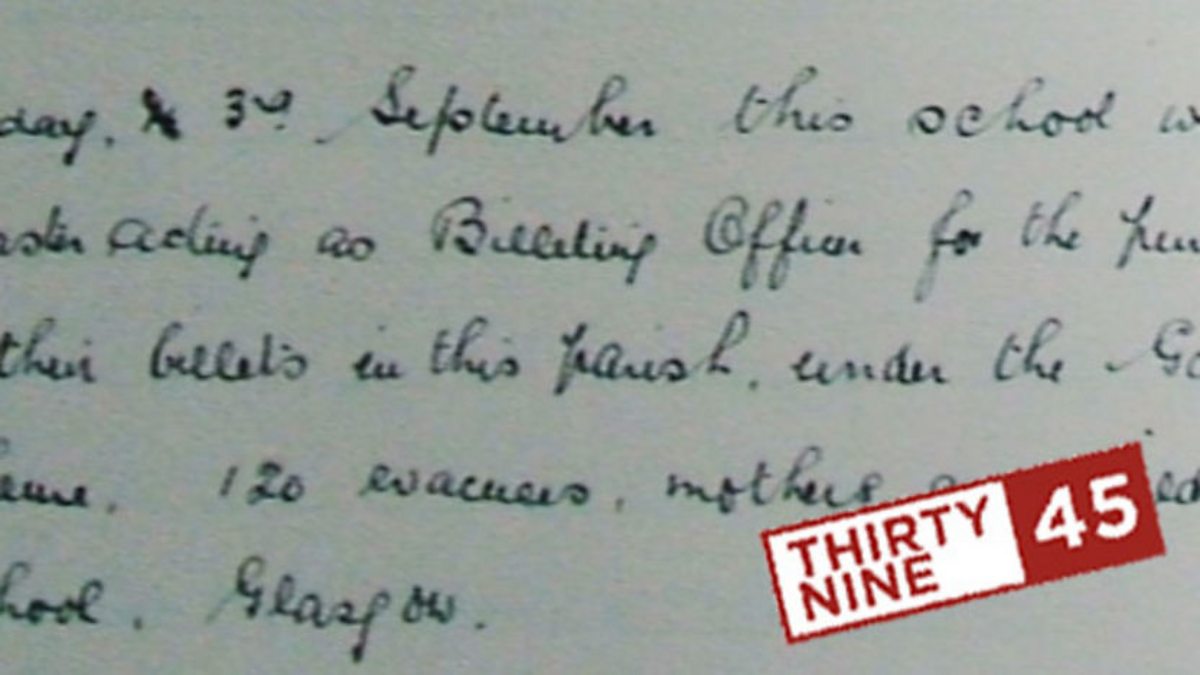 day, 3rd September this school w
aster acting as Billeting Officer for the
their billets in this parish, under the Go
heme. 120 evacuees, mothers
hool. Glasgow.
THIRTY
NINE
45